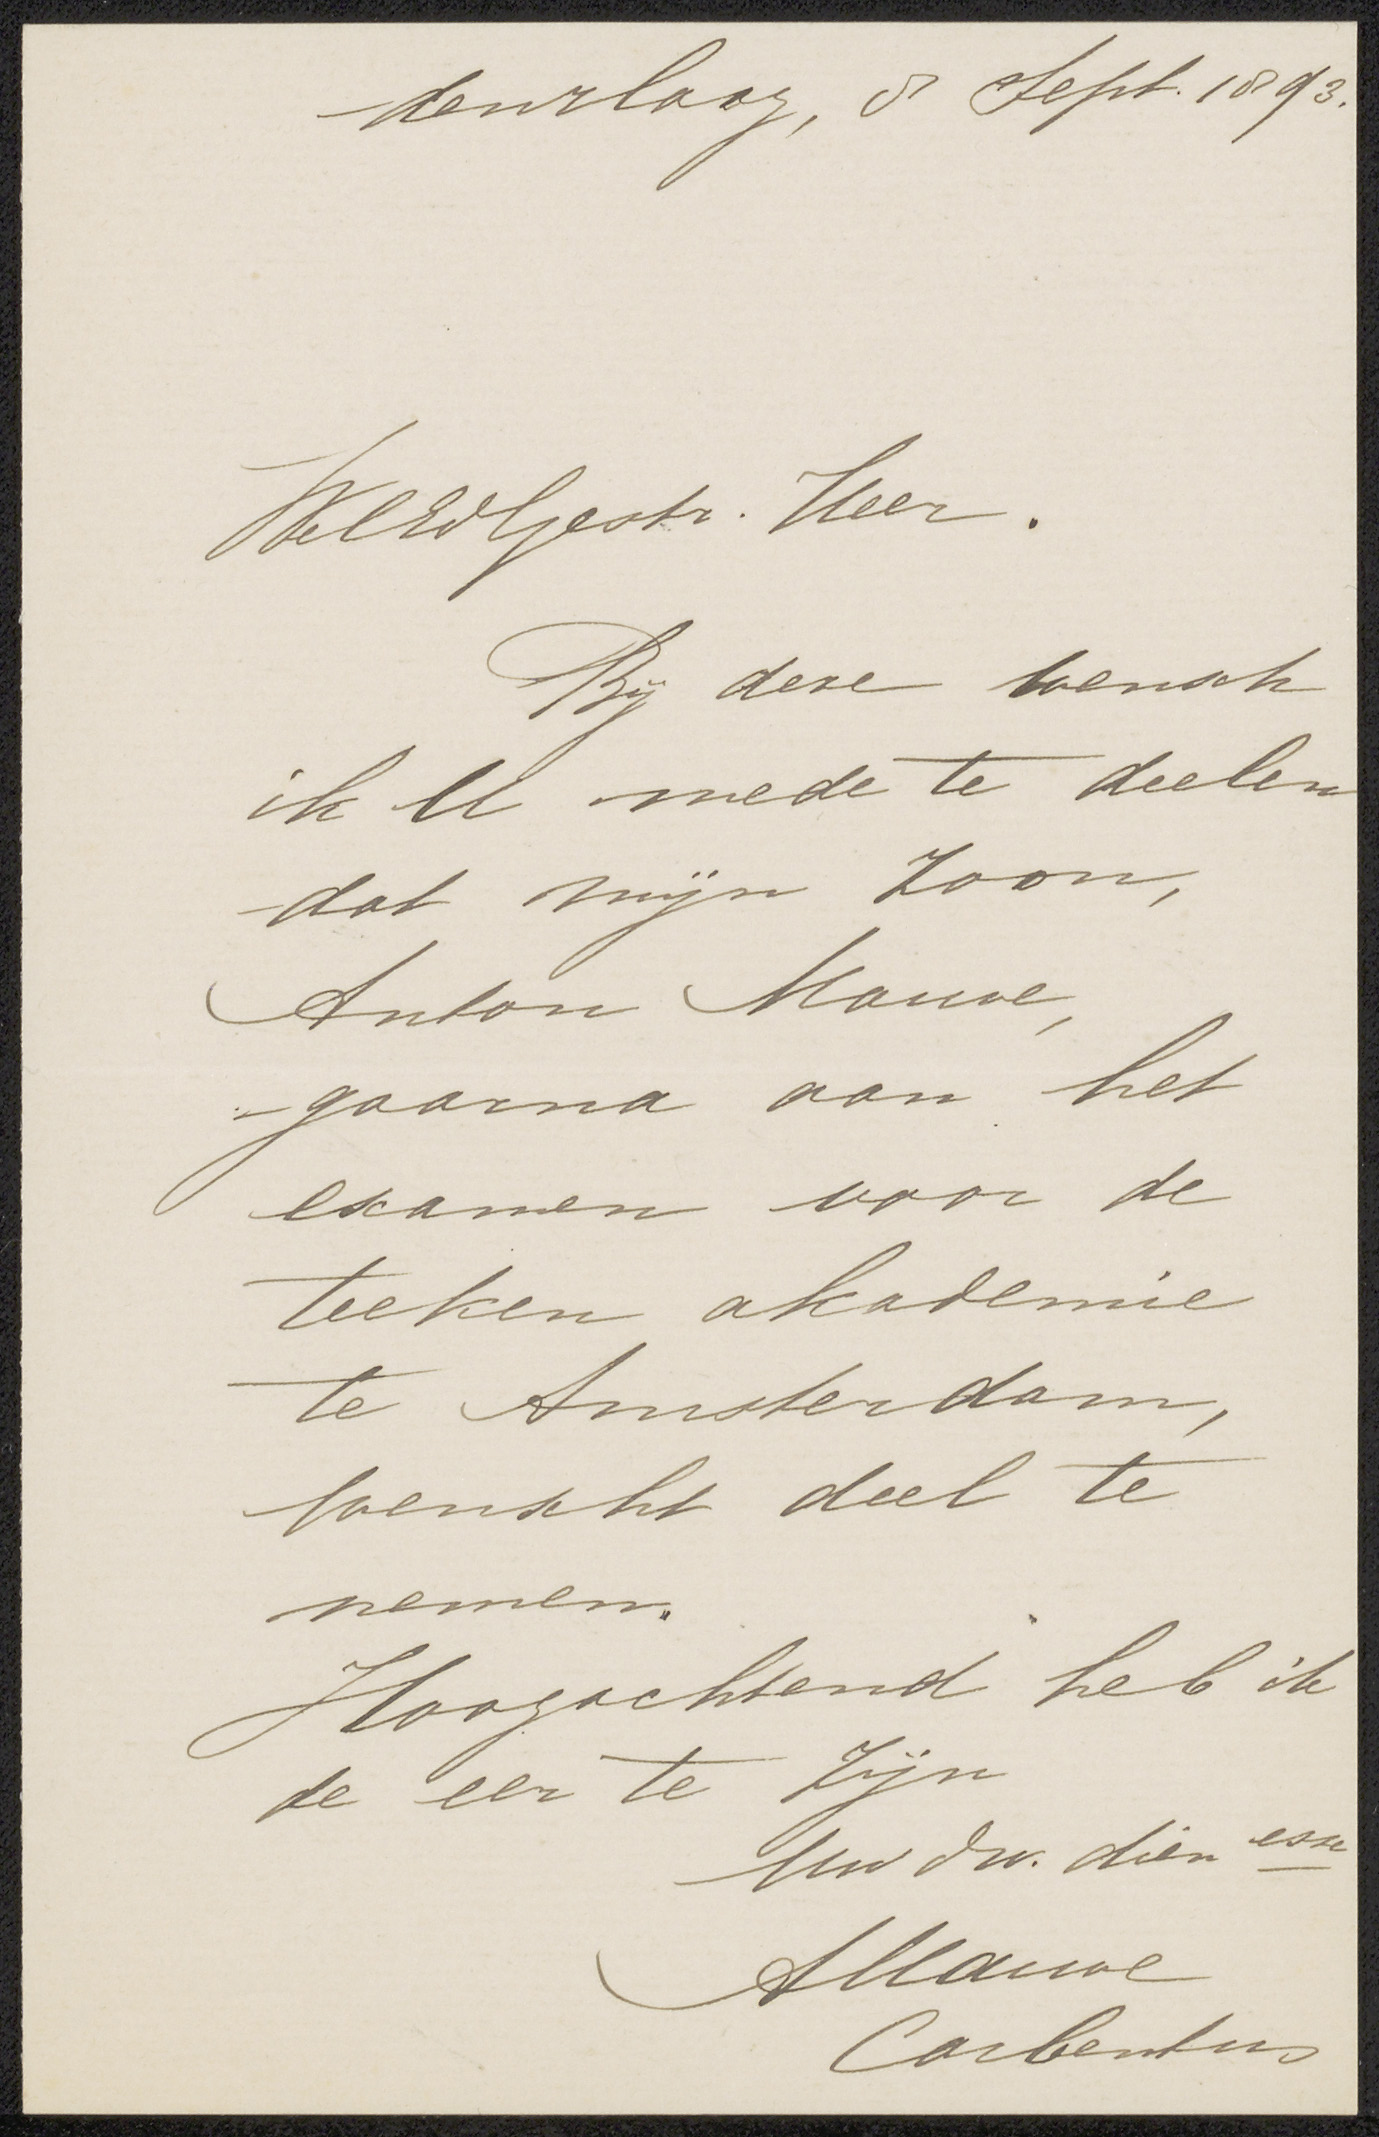 den Haag, 8 Sept. 1893.
WelEdGestr. Heer.
Bij deze wensch
ik U mede te deelen
dat mijn Zoon,
Anton Mauve,
gaarna aan het
examen voor de
teeken akademie
te Amsterdam,
wenscht deel te
nemen.
Hoogachtend heb ik
de eer te Zijn
Uw dw. dienesse
AMauve
Carbentus